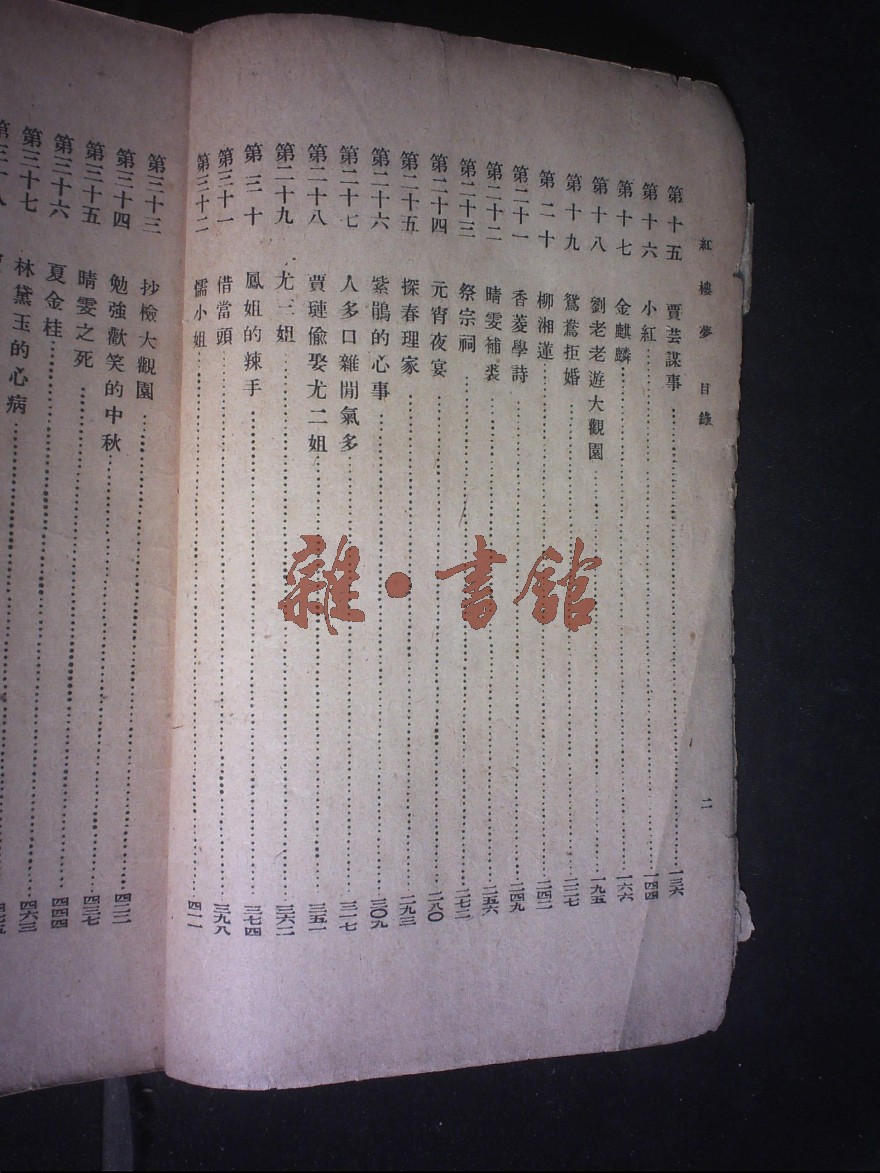 紅樓夢 目錄 二
第十五 賈芸謀事 一三六
第十六 小紅 一四四
第十七 金麒麟 一六六
第十八 劉老老遊大觀園 一九五
第十九 鴛鴦拒婚 二二七
第二十 柳湘蓮 二四二
第二十一 香菱學詩 二四九
第二十二 晴雯補裘 二五六
第二十三 祭宗祠 二七二
第二十四 元宵夜宴 二八〇
第二十五 探春理家 二九三
第二十六 紫鵑的心事 三〇九
第二十七 人多口雜閒氣多 三一七
第二十八 賈璉偷娶尤二姐 三五一
第二十九 尤三姐 三六二
第三十 鳳姐的辣手 三七四
第三十一 借當頭 三九八
第三十二 懦小姐 四一一
第三十三 抄檢大觀園
第三十四 勉強歡笑的中秋 四二二
第三十五 晴雯之死 四三七
第三十六 夏金桂 四四四
第三十七 林黛玉的心病 四六三
第三十八
雜·書館